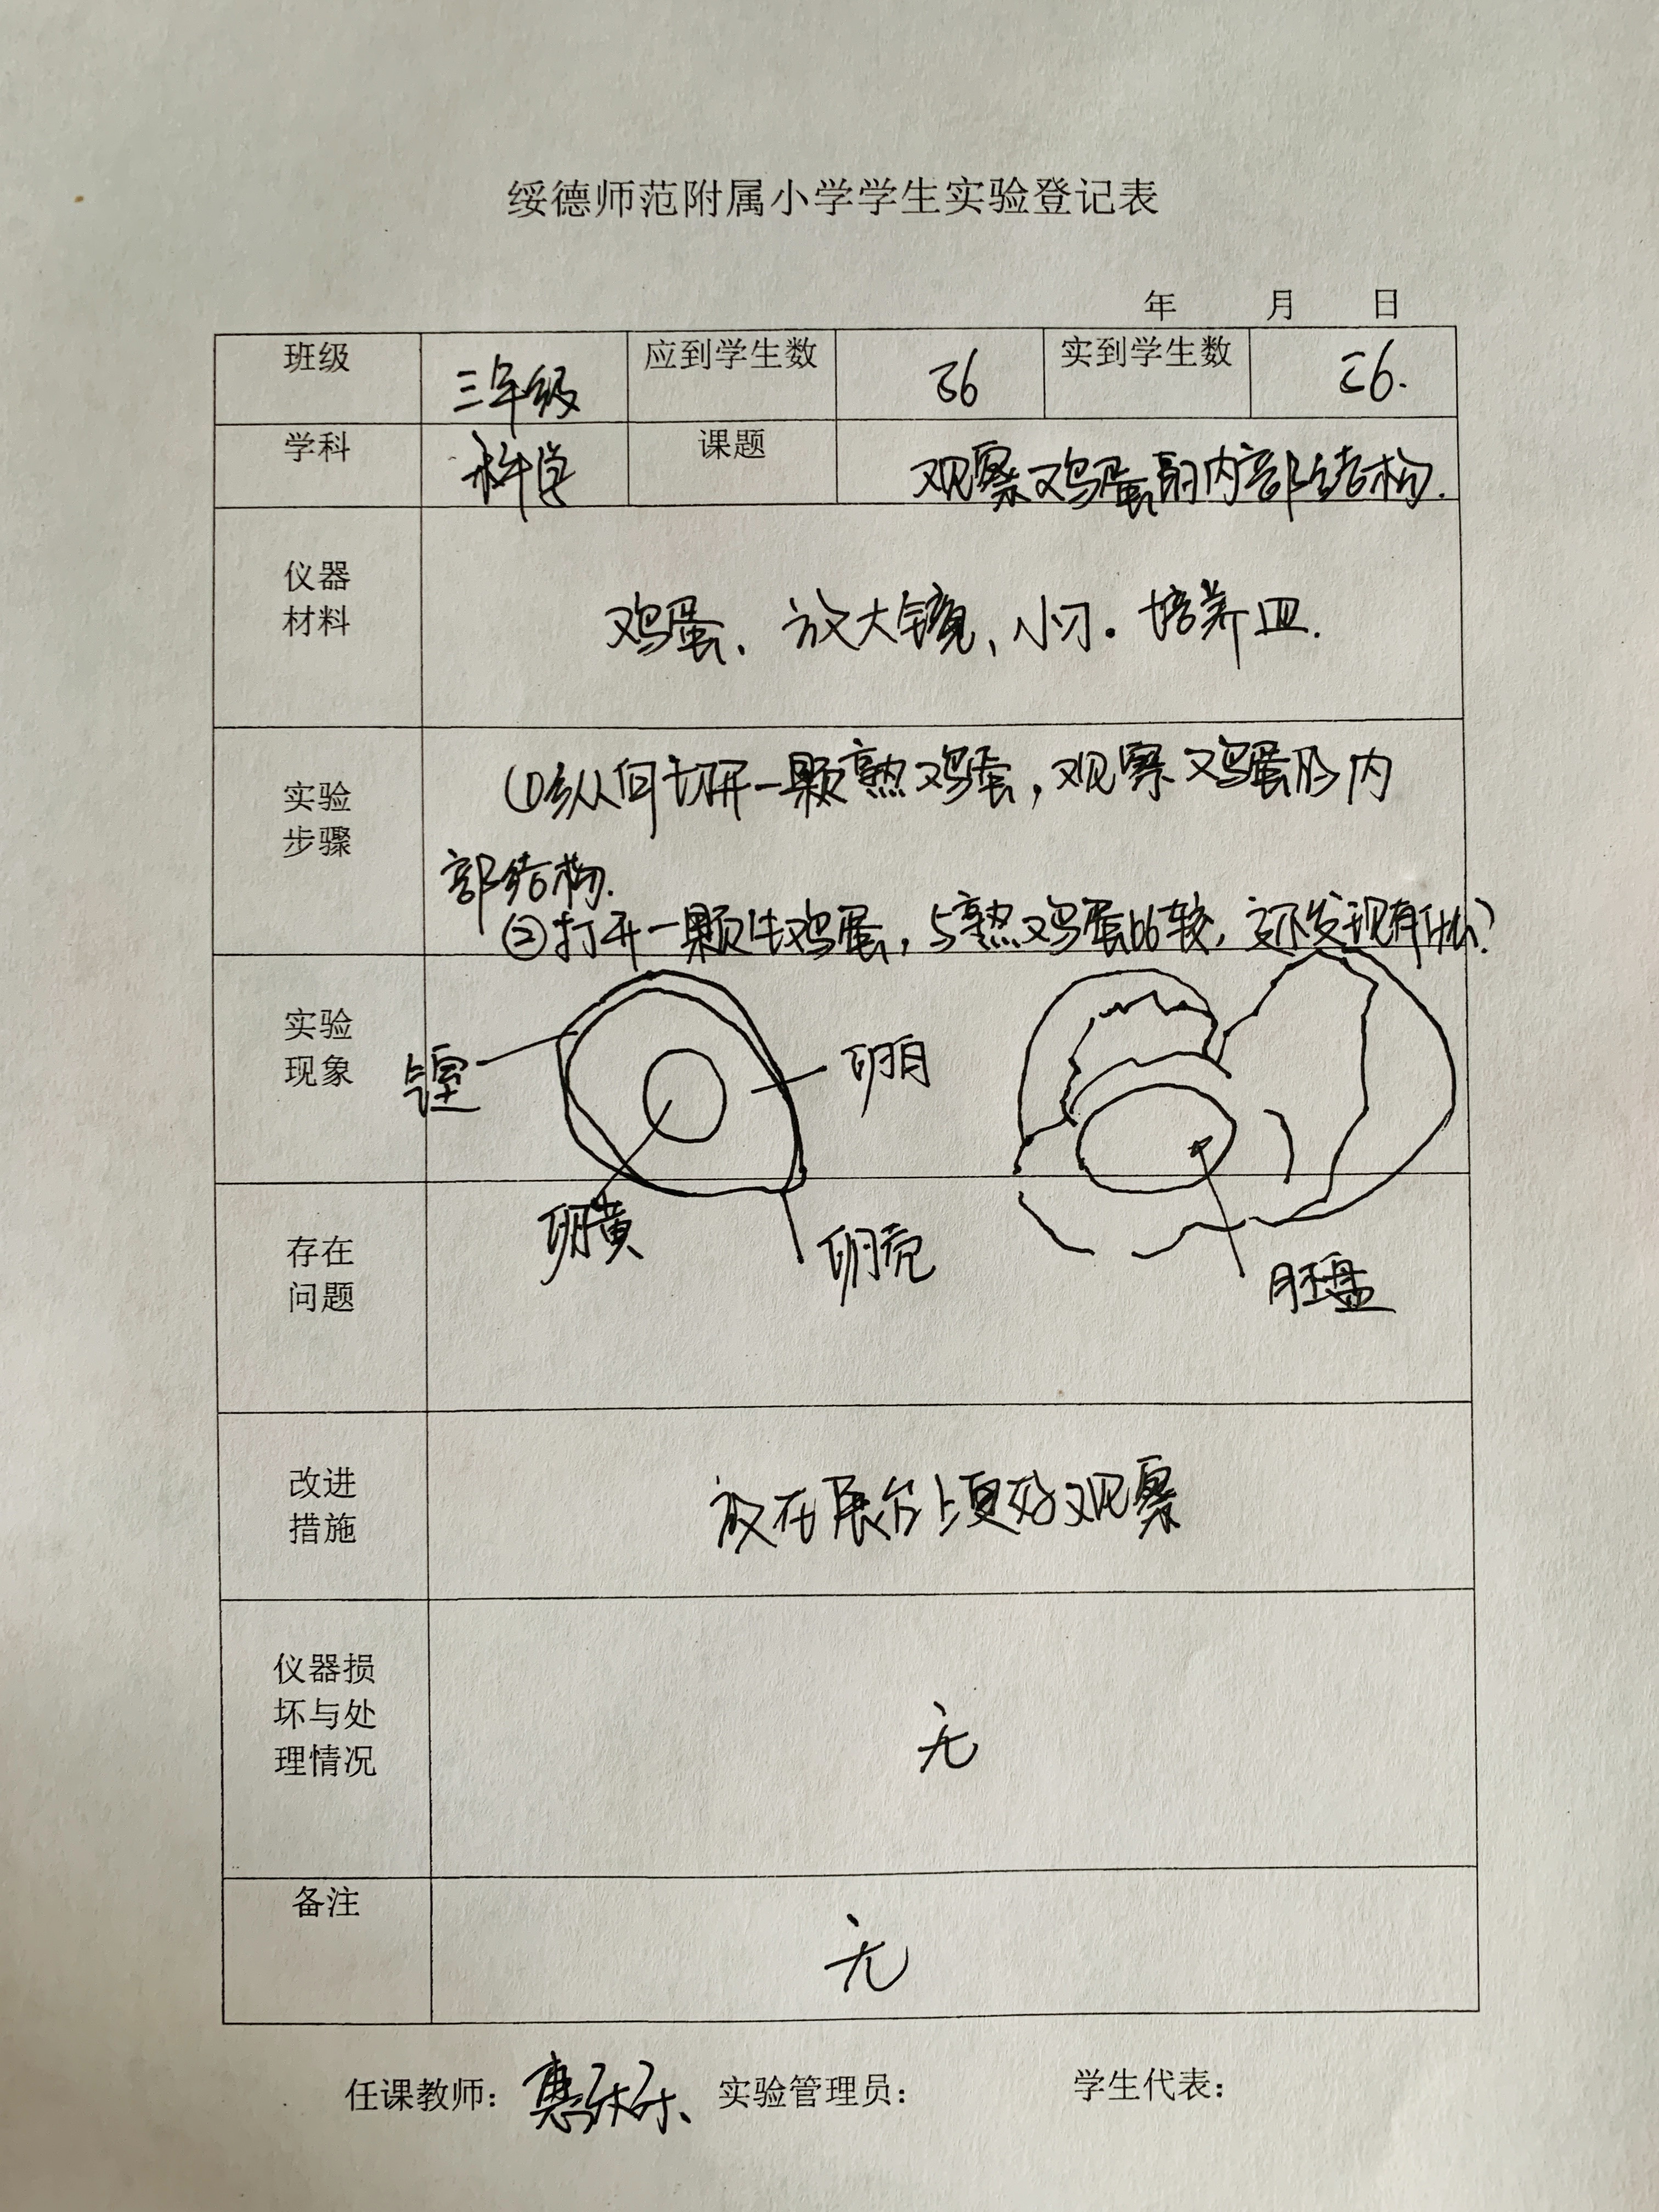 绥德师范附属小学学生实验登记表
年 月 日
班级 三年级 应到学生数 56 实到学生数 56.
学科 科学 课题 观察鸡蛋的内部结构.
仪器
材料
鸡蛋、放大镜、小刀.培养皿.
实验
步骤
①纵向切开一颗熟鸡蛋,观察鸡蛋的内
部结构.
②打开一颗生鸡蛋,与熟鸡蛋比较,还发现有什么?
实验
现象
气室
卵白
卵黄
卵壳
胚盘
存在
问题
改进
措施
放在展台上更好观察
仪器损
坏与处
理情况
无
备注
无
任课教师: 惠 实验管理员: 学生代表: